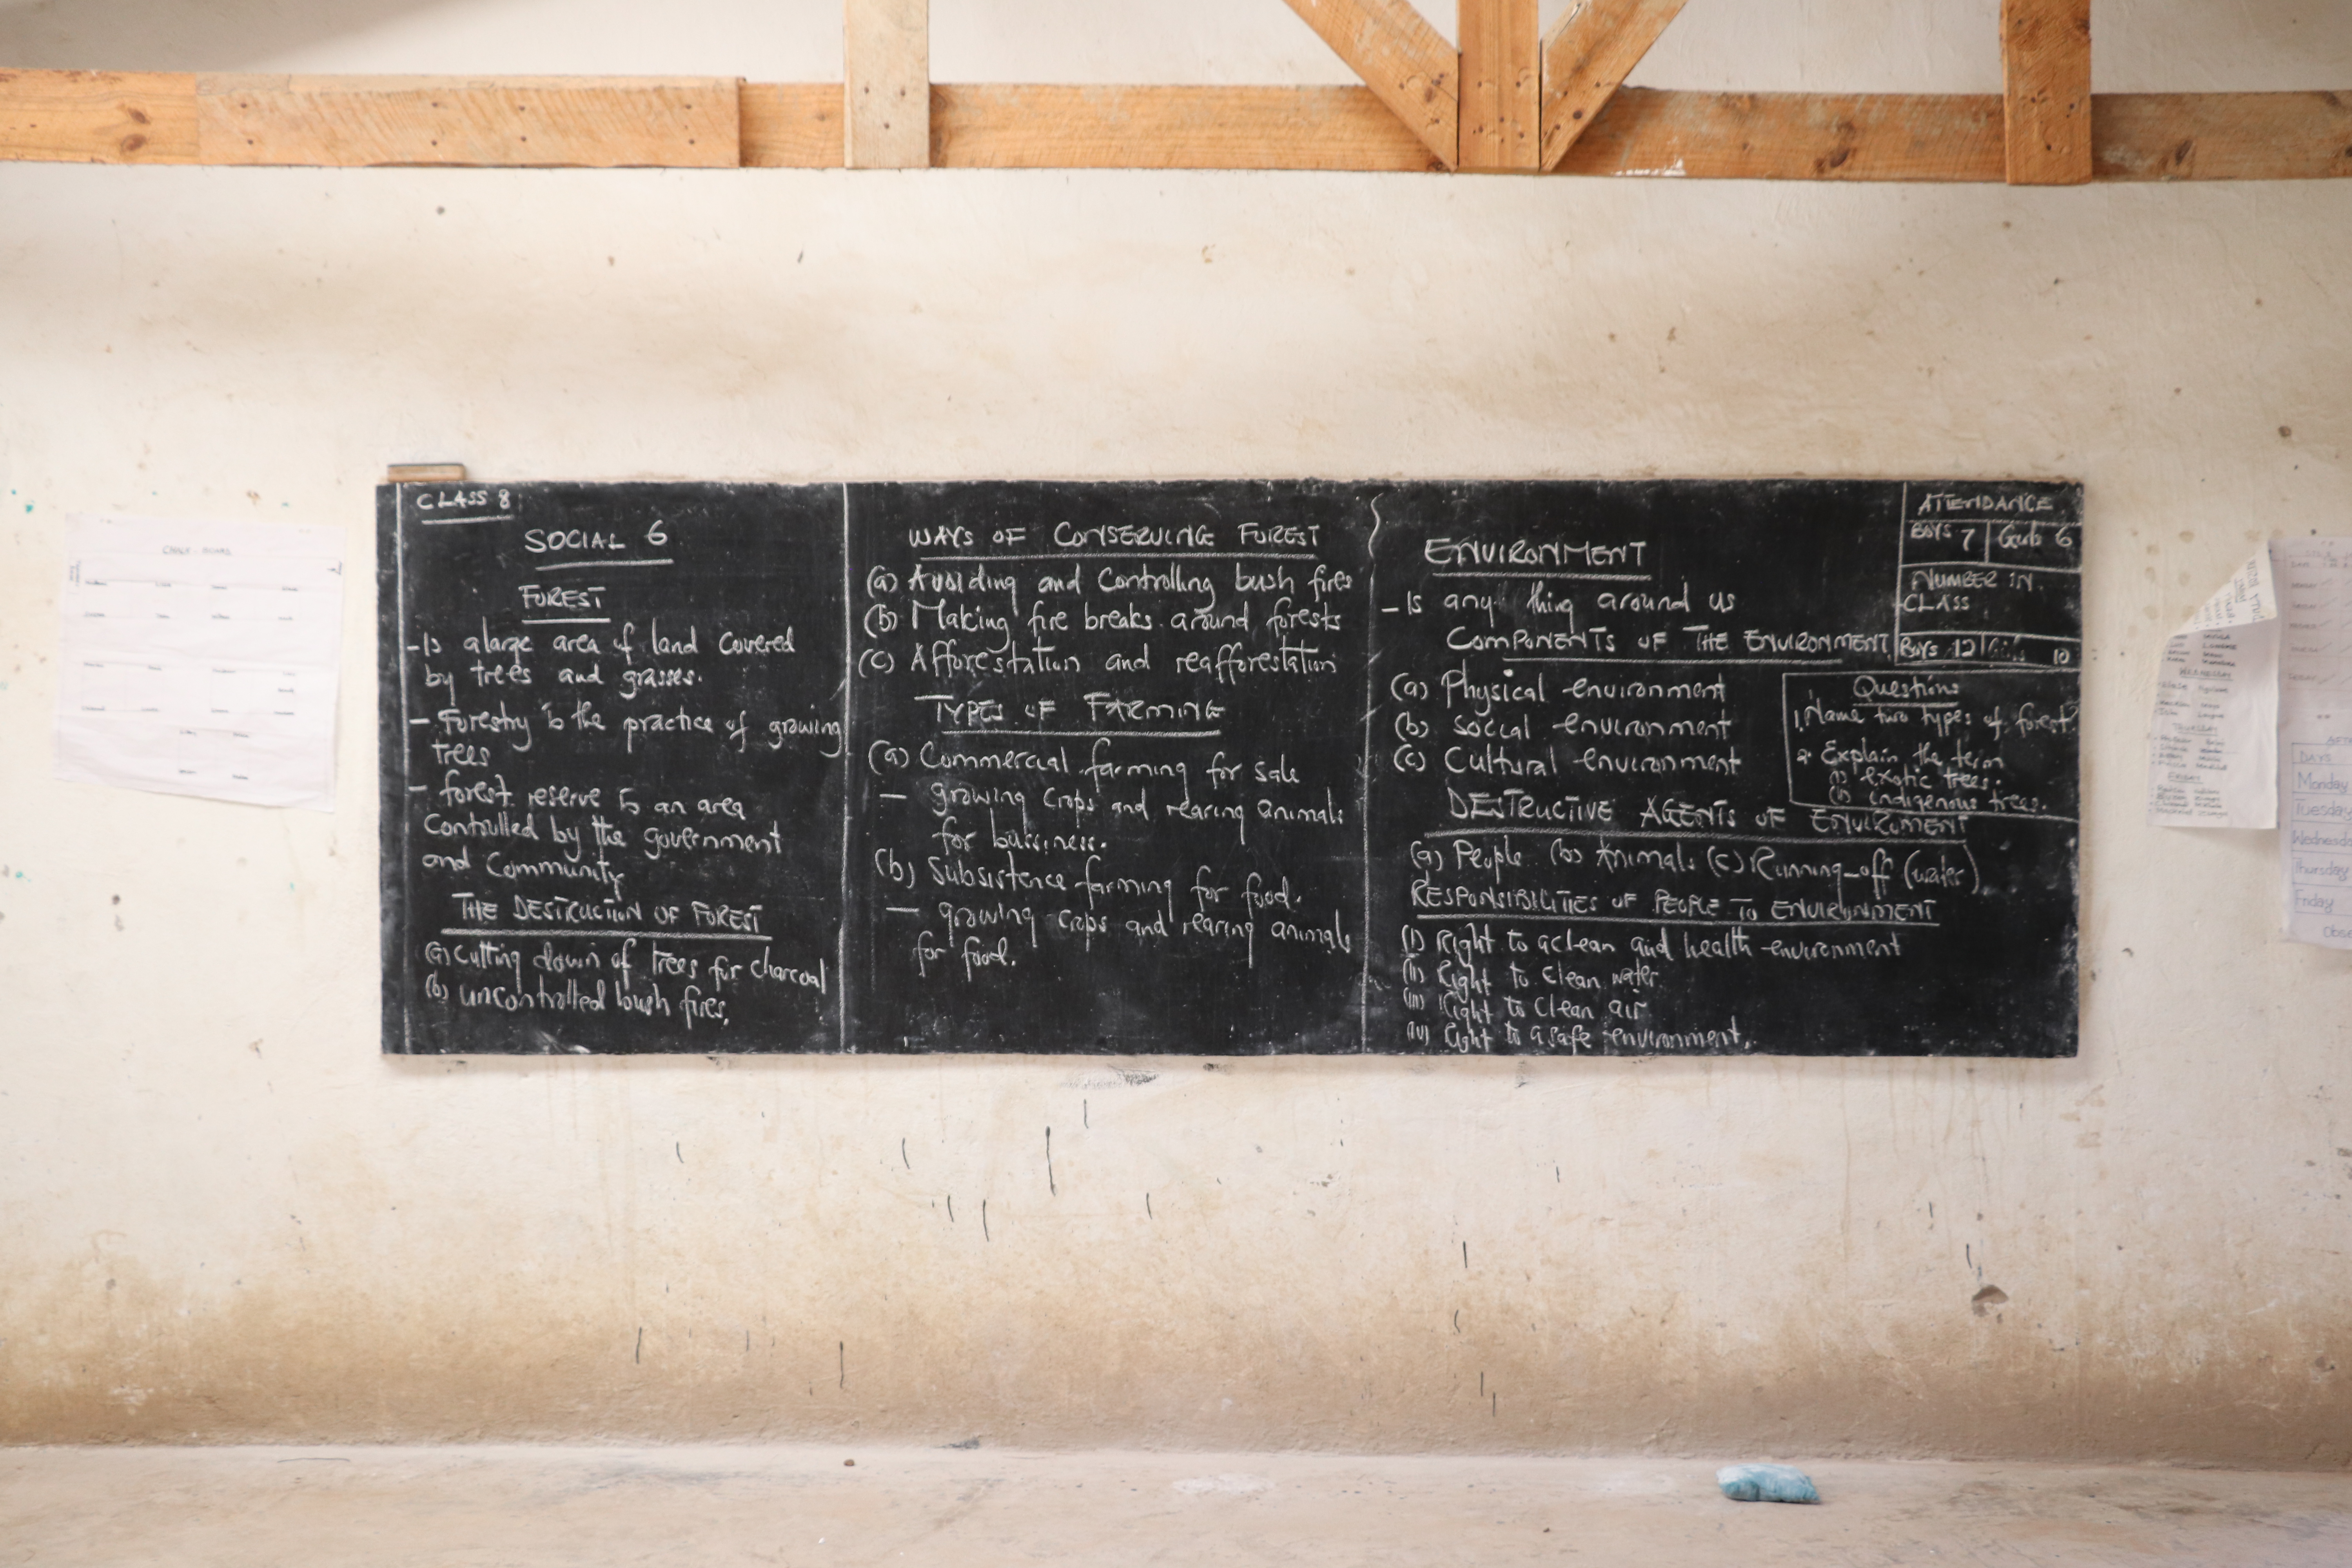 CLASS 8
SOCIAL 6
FOREST
- Is a large area of land covered
by trees and grasses.
- Forestry is the practice of growing
trees
- forest reserve is an area
Controlled by the government
and Community
THE DESTRUCTION OF FOREST
(a) Cutting down of trees for charcoal
(b) uncontrolled bush fires.
WAYS OF CONSERVING FOREST
(a) Avoiding and Controlling bush fires
(b) Making fire breaks around forests
(c) Afforestation and reafforestation
TYPES OF FARMING
(a) Commercial farming for sale
- growing crops and rearing animals
for bussiness.
(b) Subsistence farming for food.
- growing crops and rearing animals
for food.
ENVIRONMENT
- Is any thing around us
COMPONENTS OF THE ENVIRONMENT
(a) Physical environment
(b) Social environment
(c) Cultural environment
DESTRUCTIVE AGENTS OF ENVIROMENT
(a) People (b) Animals (c) Running-off (water)
RESPONSIBILITIES OF PEOPLE TO ENVIRONMENT
(i) Right to a clean and health environment
(ii) Right to clean water
(iii) Right to clean air
(iv) Right to a safe environment.
ATTENDANCE
BOYS 7 Girls 6
NUMBER IN
CLASS
Boys 12 Girls 10
Questions
1. Name two types of forest?
2. Explain the term
(i) exotic trees.
(ii) indigenous trees.
WEDNESDAY
THURSDAY
FRIDAY
DAYS
Monday
Tuesday
Wednesday
Thursday
Friday